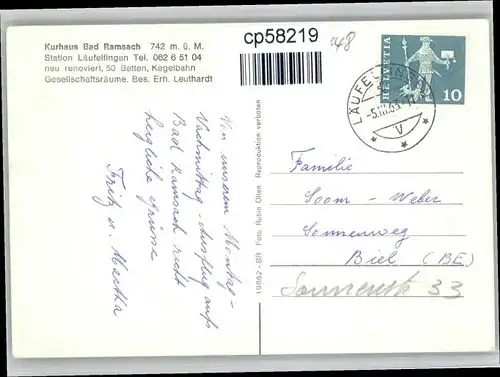 Kurhaus Bad Ramsach 742 m. ü. M.
Station Läufelfingen Tel. 062 6 51 04
neu renoviert, 50 Betten, Kegelbahn
Gesellschaftsräume. Bes. Erh. Leuthardt
cp58219
HELVETIA
10
-5.III.63
V
Von unserem Montag-
Nachmittag-Ausflug aufs
Bad Ramsach recht
herzliche Grüsse
Fritz u. Martha
19862 - BR Foto Rubin Olten Reproduktion verboten
Familie
Soom - Weber
Sonnenweg
Biel (BE)
Sonnenstr 33